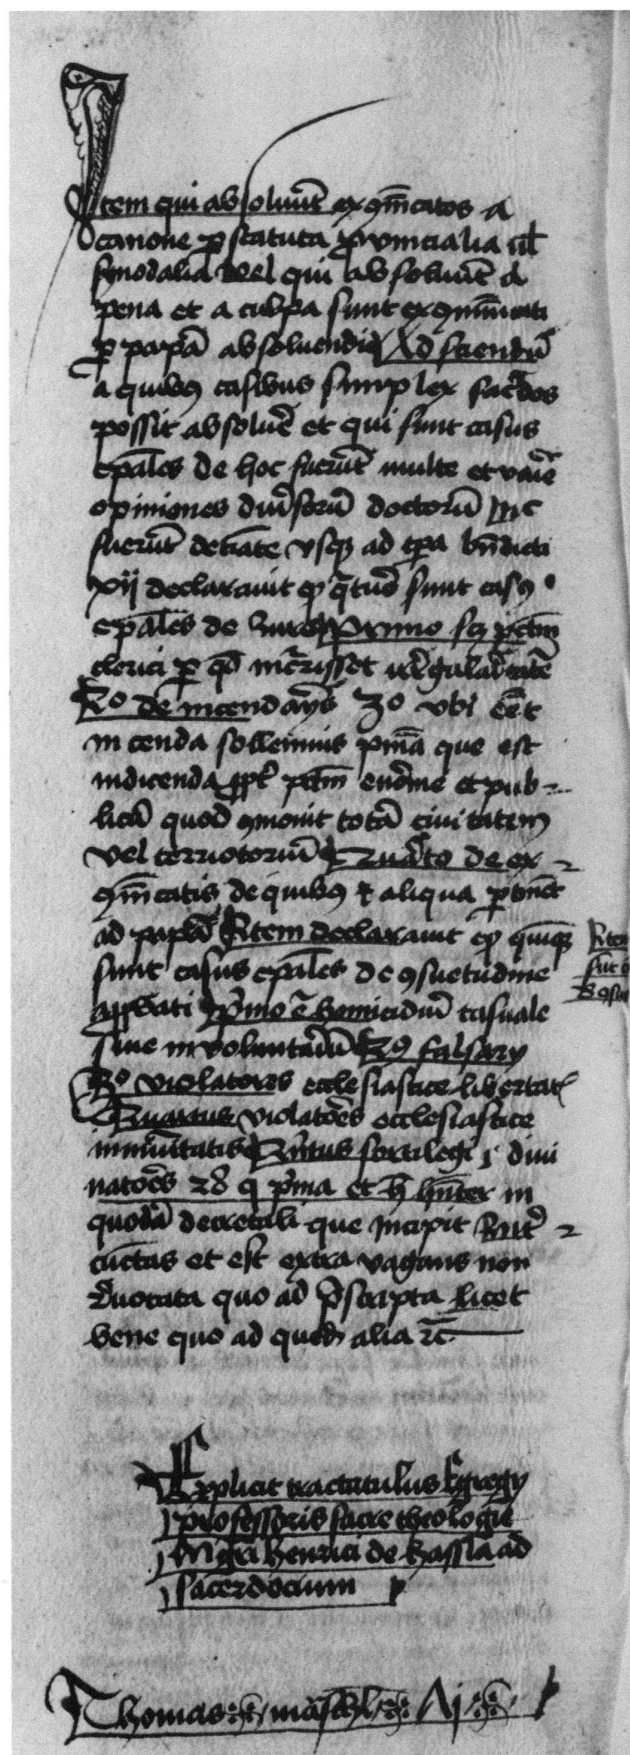 Item qui absoluūt exꝯm̄catos a
canone ꝑ statuta ꝓvincialia ul̄
sinodalia vel qui absoluūt a
pena et a culpa sunt exꝯmūicati
ꝑ papā absoluendi Ad sciendū
a quibꝰ casibus simplex sac̄dos
possit absoluē et qui sunt casus
ep̄ales de hoc fuerūt multe et vaīe
opiniones diūsorū doctorū
fuerūt usqꝫ ad tꝑa bn̄dicti
xij declarauit ꝙ q̄tuor sunt casꝰ
ep̄ales de iure Primo scꝫ pctm̄
clerici ꝑ qd̄ incrr̄isset irregularitatē
2º de incendarijs 3º ubi eēt
in cenda sollemnis pnīa que est
indicenda ꝓpt̄ pctm̄ enorme et pub-
licū quod ꝯmouit totā ciuitatem
vel territorium Quarto de ex-
ꝯm̄catis de quibꝰ aliqua ꝑtinēt
ad papā Item declarauit ꝙ quinqꝫ
sunt casus ep̄ales de ꝯsuetudine
apꝓbati pͥmo ē homicidiū casuale
siue inuoluntariū 2º falsarij
3º violatores ecclesiastice libertatꝭ
Quartus violatores ecclesiastice
inmūitatis Quītus sortilegi diui
natores pͥma et hn̄ter in
quodā decretali que incipit
cūctas et est extra vagans non
reuocata quo ad pͥscripta licet
bene quo ad quedā alia ꝛc̄
Explicit tractatulus Egregij
professoris sacre theologie
Mgr̄i henrici de hassia ad
sacerdocium
Thomas